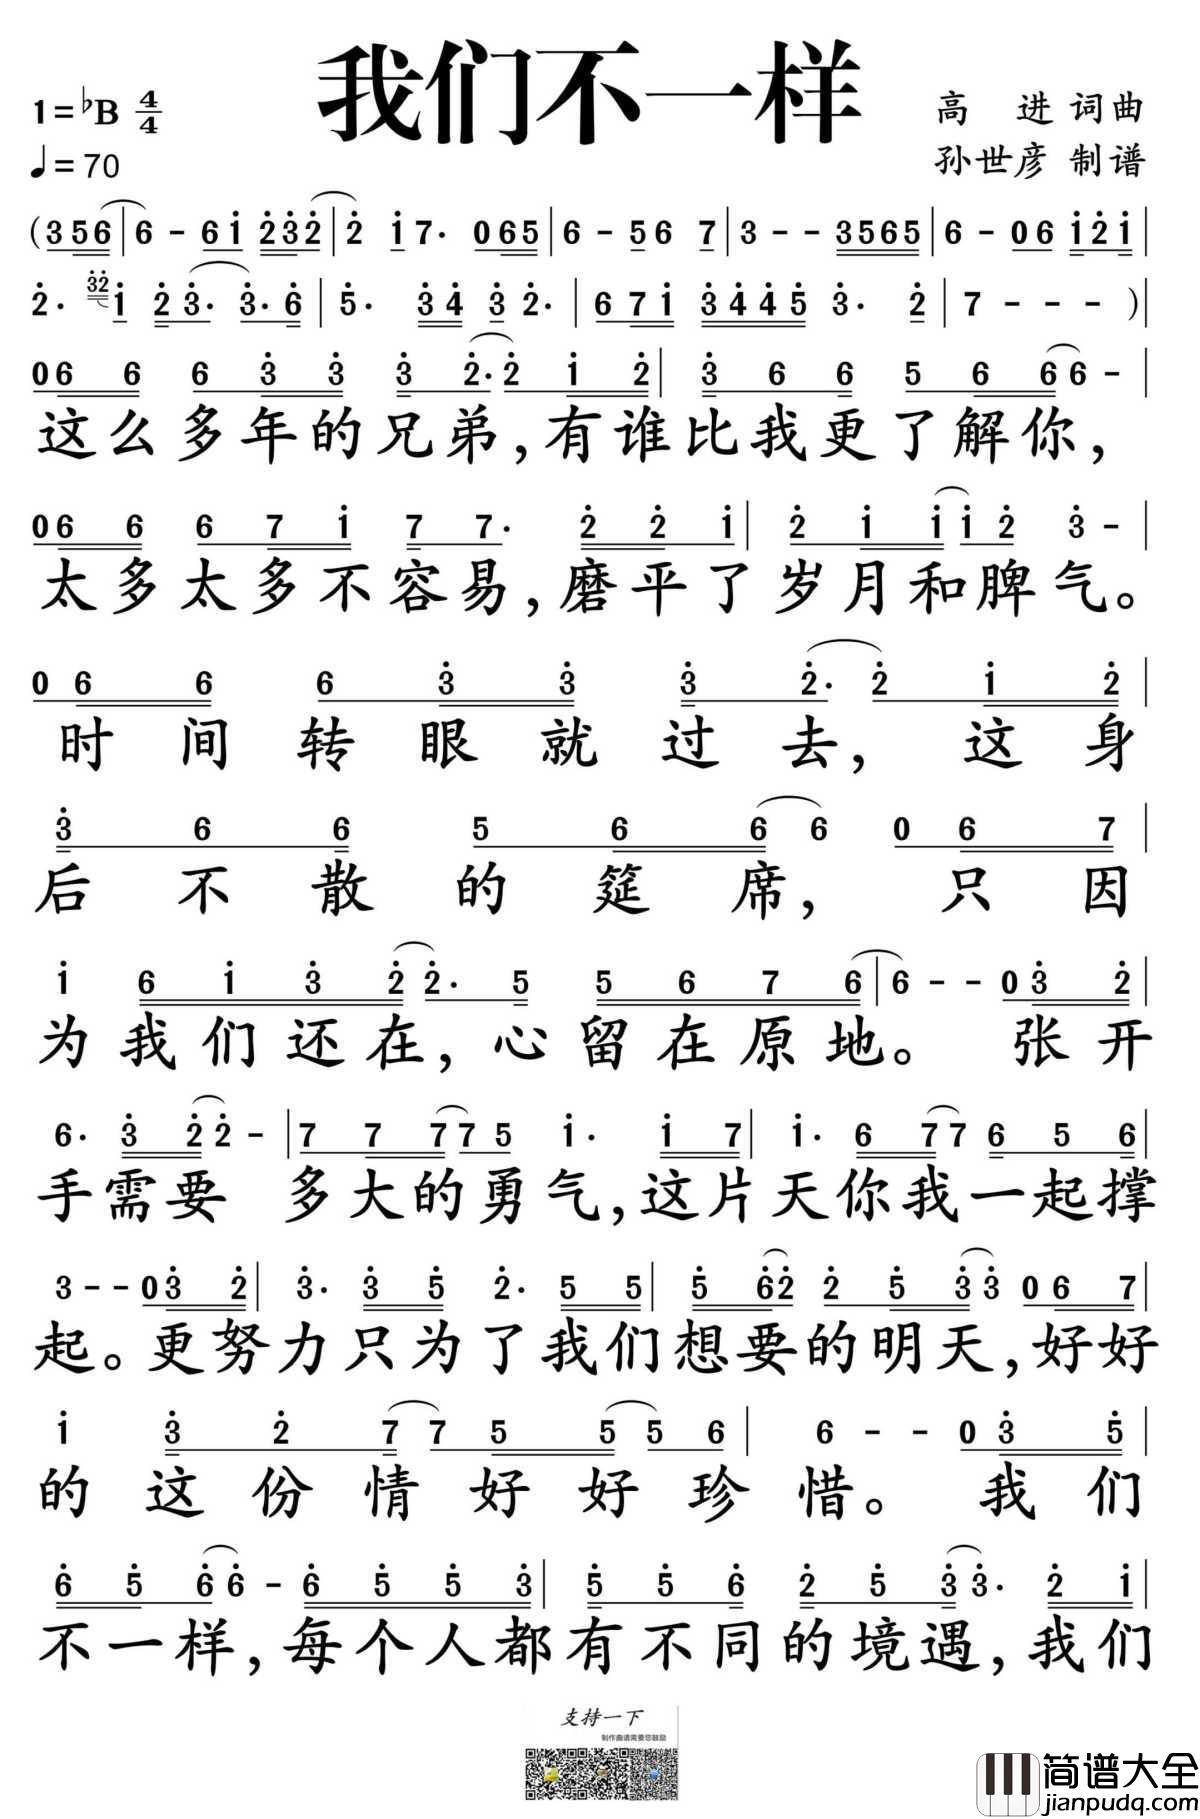 我们不一样
1=♭B 4/4
♩=70
高 进 词曲
孙世彦 制谱
(3 5 6 | 6 - 6 i 2 3 2 | 2 i 7· 0 6 5 | 6 - 5 6 7 | 3 - - 3 5 6 5 | 6 - 0 6 i 2 i |
2· 32 i 2 3· 3· 6 | 5· 3 4 3 2· | 6 7 i 3 4 4 5 3· 2 | 7 - - - )|
0 6 6 6 3 3 3 2· 2 i 2 | 3 6 6 5 6 6 6 - |
这么多年的兄弟,有谁比我更了解你,
0 6 6 6 7 i 7 7· 2 2 i | 2 i i i 2 3 - |
太多太多不容易,磨平了岁月和脾气。
0 6 6 6 3 3 3 2· 2 i 2 |
时间转眼就过去,这身
3 6 6 5 6 6 6 0 6 7 |
后不散的筵席,只因
i 6 i 3 2 2· 5 5 6 7 6 | 6 - - 0 3 2 |
为我们还在,心留在原地。张开
6· 3 2 2 - | 7 7 7 7 5 i· i 7 | i· 6 7 7 6 5 6 |
手需要多大的勇气,这片天你我一起撑
3 - - 0 3 2 | 3· 3 5 2· 5 5 | 5 6 2 2 5 3 3 0 6 7 |
起。更努力只为了我们想要的明天,好好
i 3 2 7 7 5 5 5 6 | 6 - - 0 3 5 |
的这份情好好珍惜。我们
6 5 6 6 - 6 5 5 3 | 5 5 6 2 5 3 3· 2 i |
不一样,每个人都有不同的境遇,我们
支持一下
制作曲谱需要您鼓励
简谱大全
jianpudq.com